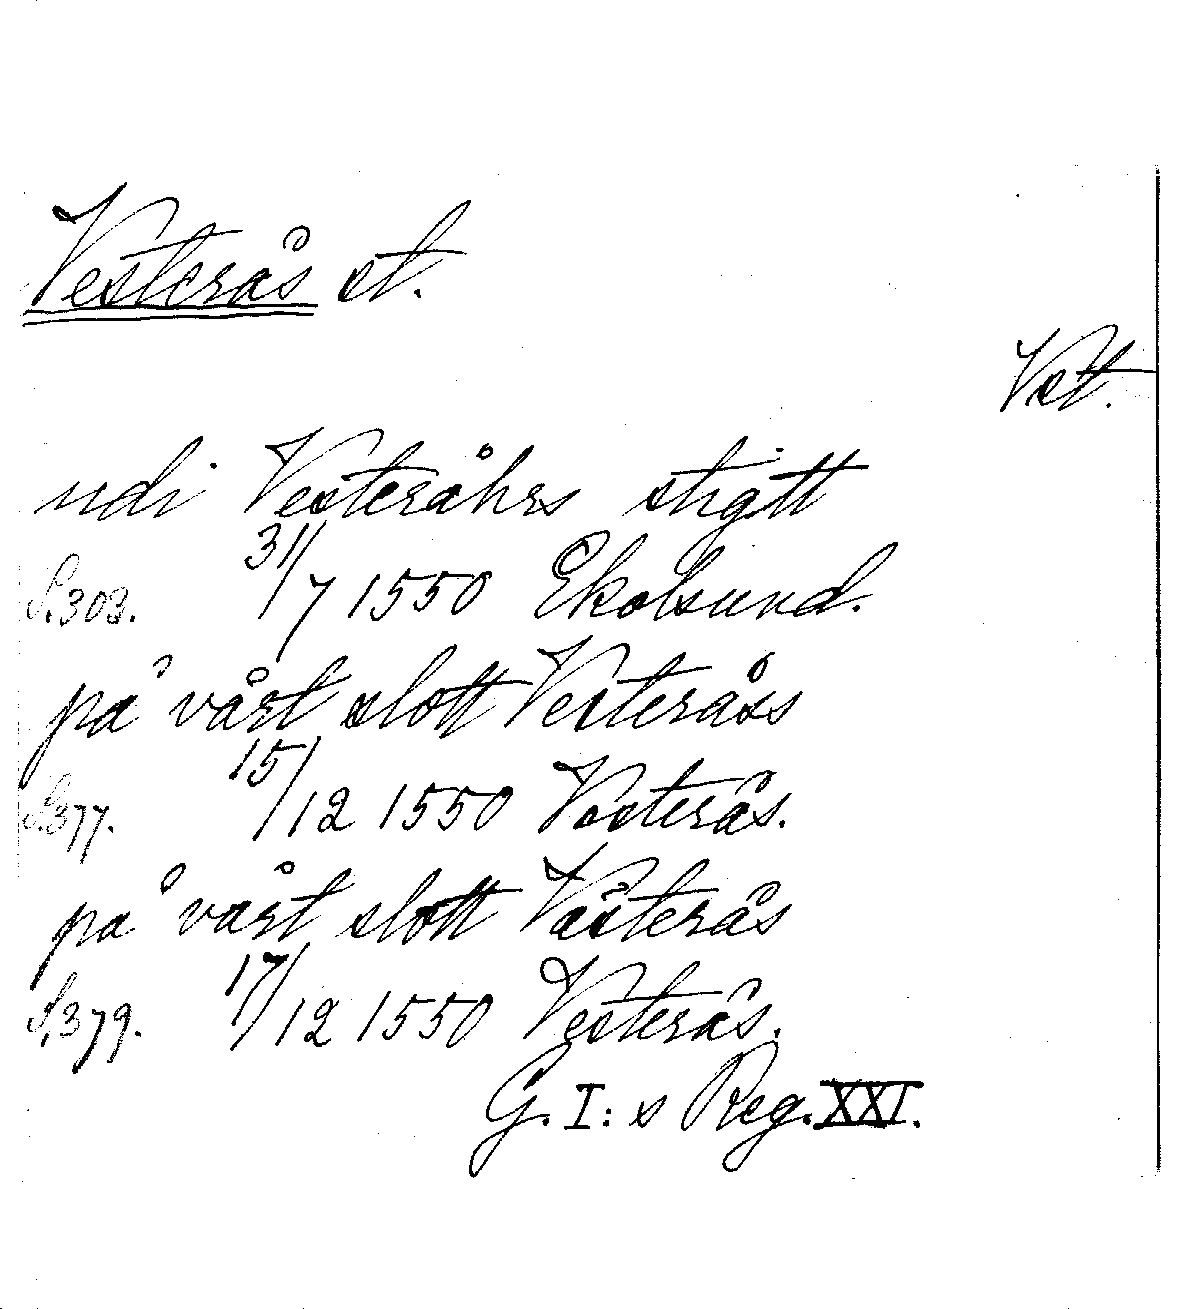 Vesterås st.
Vst.
udi Vesteråhrs stigtt
S. 303. 31/7 1550 Ekolsund.
på vårt slott Vesteråss
S. 377. 15/12 1550 Vesterås.
på vårt slott Västerås
S. 379. 17/12 1550 Vesterås.
G. I:s Reg. XXI.